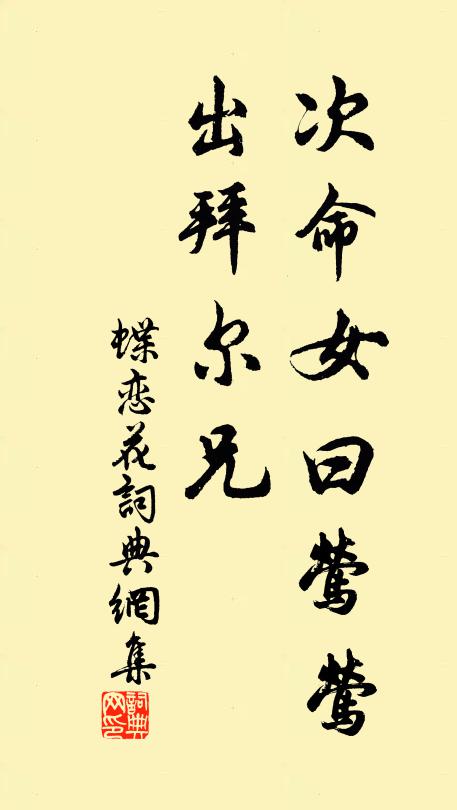 次命女曰莺莺
出拜尔兄
蝶恋花詞典網集
詞典
网印